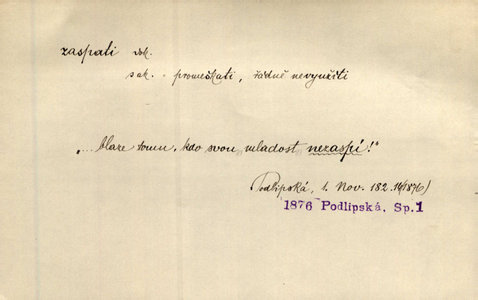 zaspati dok.
s ak. - promeškati, řádně nevyužíti
„... blaze tomu, kdo svou mladost nezaspí!“
Podlipská, 1. Nov. 182.16(1876)
1876 Podlipská, Sp.1